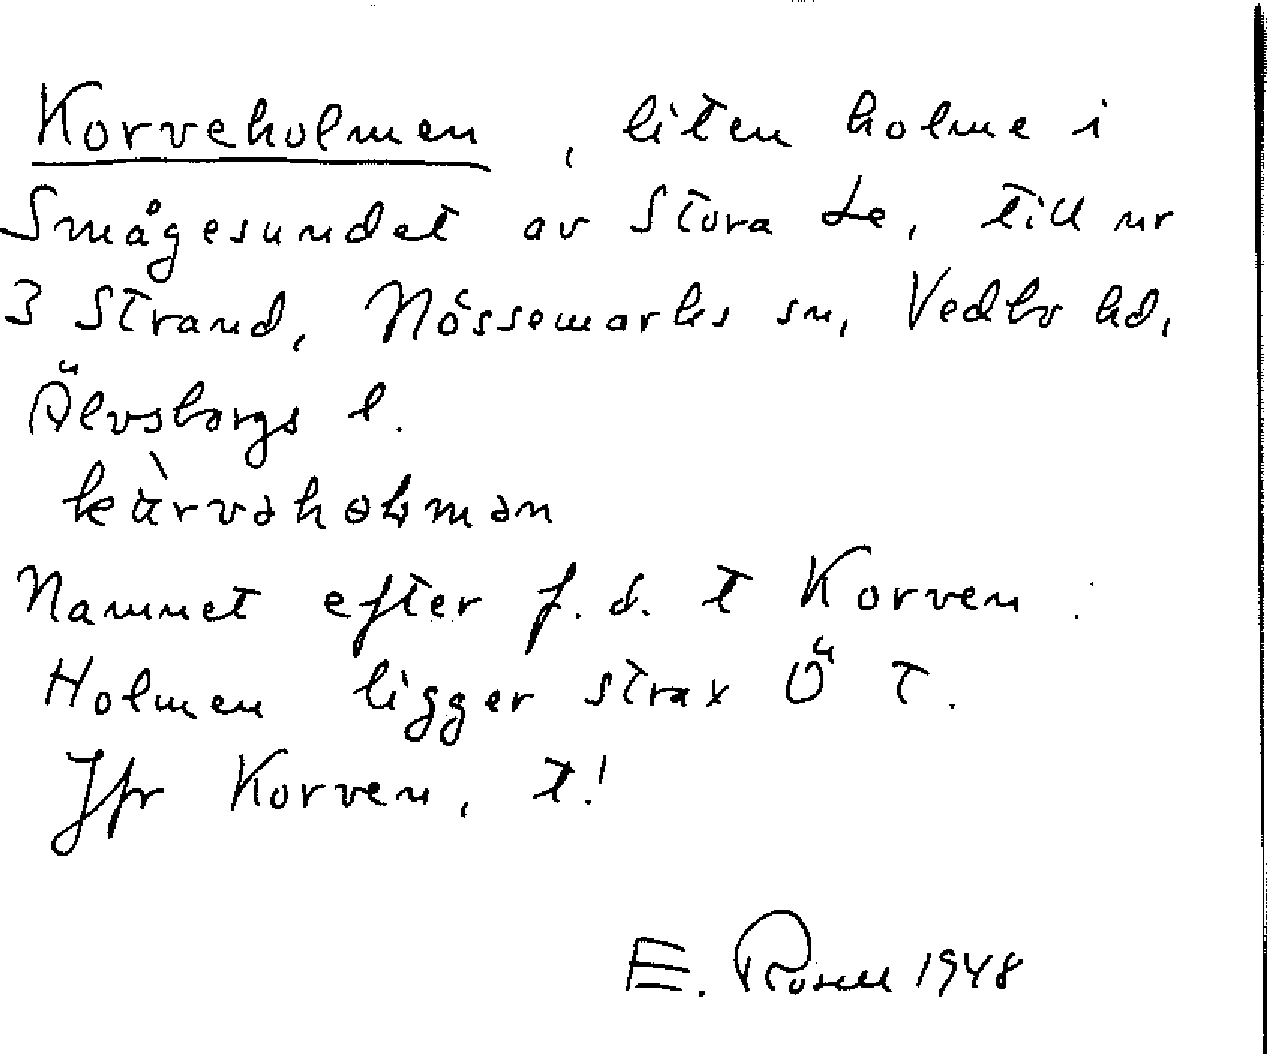 Korveholmen, liten holme i
Smågesundet av Stora Le, till nr
3 Strand, Nössemarks sn, Vedbo hd,
Älvsborgs l.
Namnet efter f.d. t Korven.
Holmen ligger strax Ö T.
Jfr Korven, t!
E. Rosell 1948